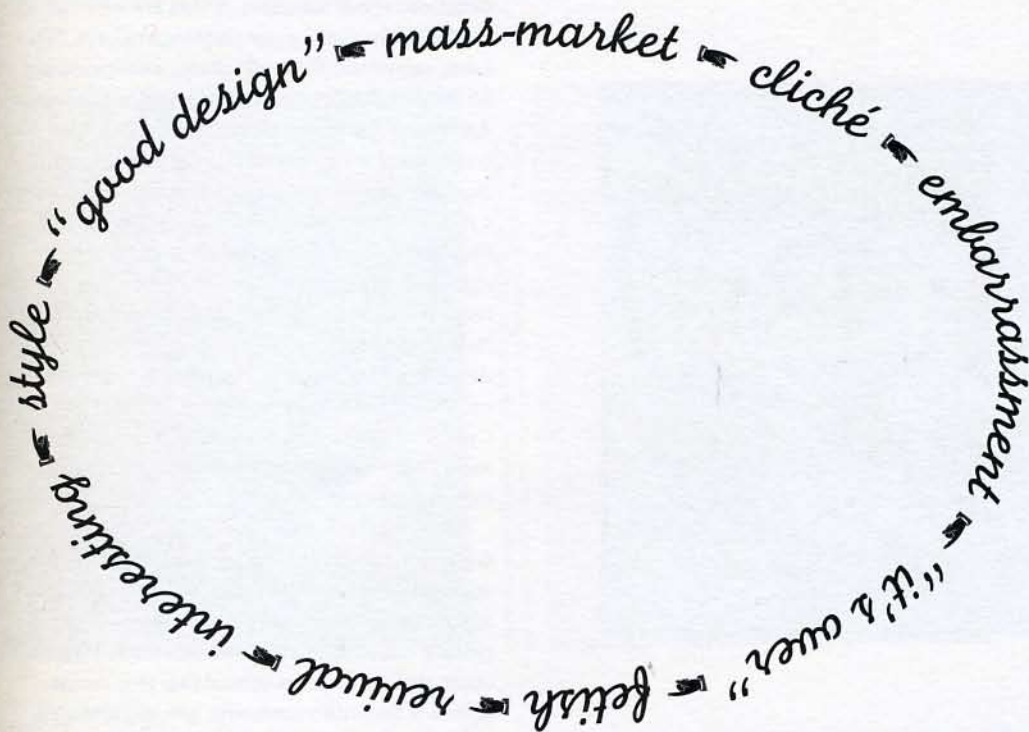 style ☛ “good design” ☛ mass-market ☛ cliché ☛ embarrassment ☛ “it’s over” ☛ fetish ☛ revival ☛ interesting ☛